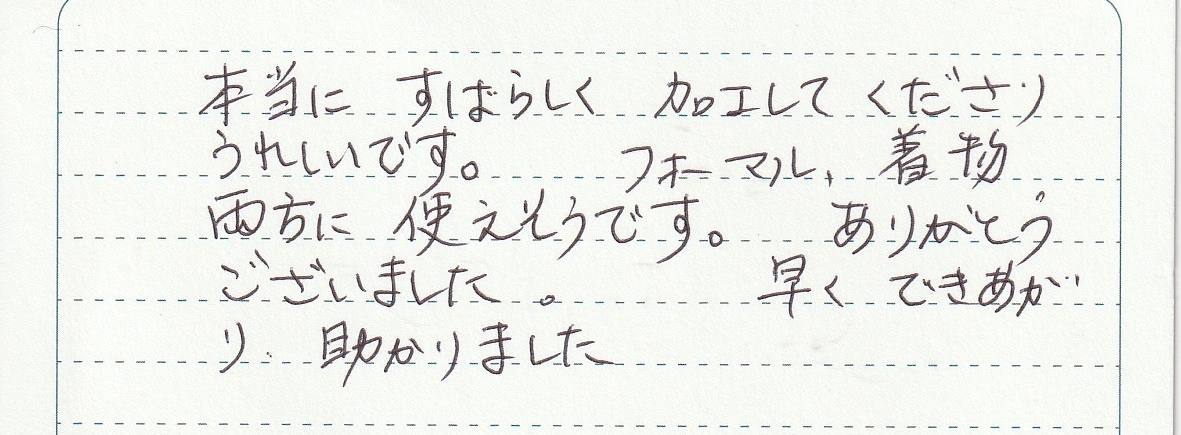 本当に すばらしく 加工して くださり
うれしいです。 フォーマル、着物
両方に 使えそうです。 ありがとう
ございました。 早く できあが
り 助かりました